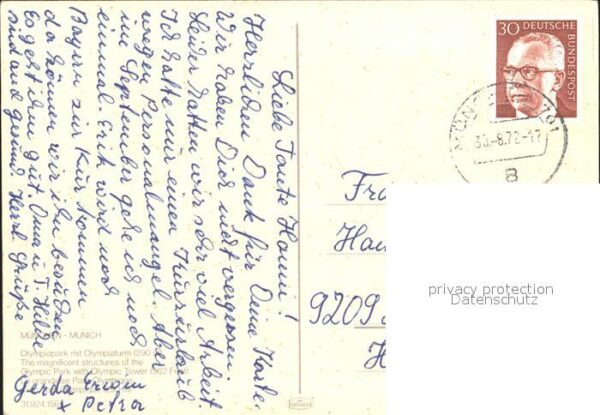 Liebe Tante Hanni!
Herzlichen Dank für Deine Karte.
Wir haben Dich nicht vergessen.
Leider hatten wir sehr viel Arbeit.
Ich hatte nur einen Kurzurlaub
wegen Personalmangel. Aber
im September gehe ich noch
einmal. Erich wird nach
Bayern zur Kur kommen
da können wir ihn besuchen.
Es geht ihm gut. Oma u. T. Hilde
sind auch gesund. Herzl. Grüße
Gerda Erwin
+ Petra
MÜNCHEN - MUNICH
Olympiapark mit Olympiaturm (290
The magnificent structures of the
Olympic Park with Olympic Tower (952 Feet)
30
DEUTSCHE
BUNDESPOST
30.-8.72-17
8
Fr
Ha
9209
H
privacy protection
Datenschutz